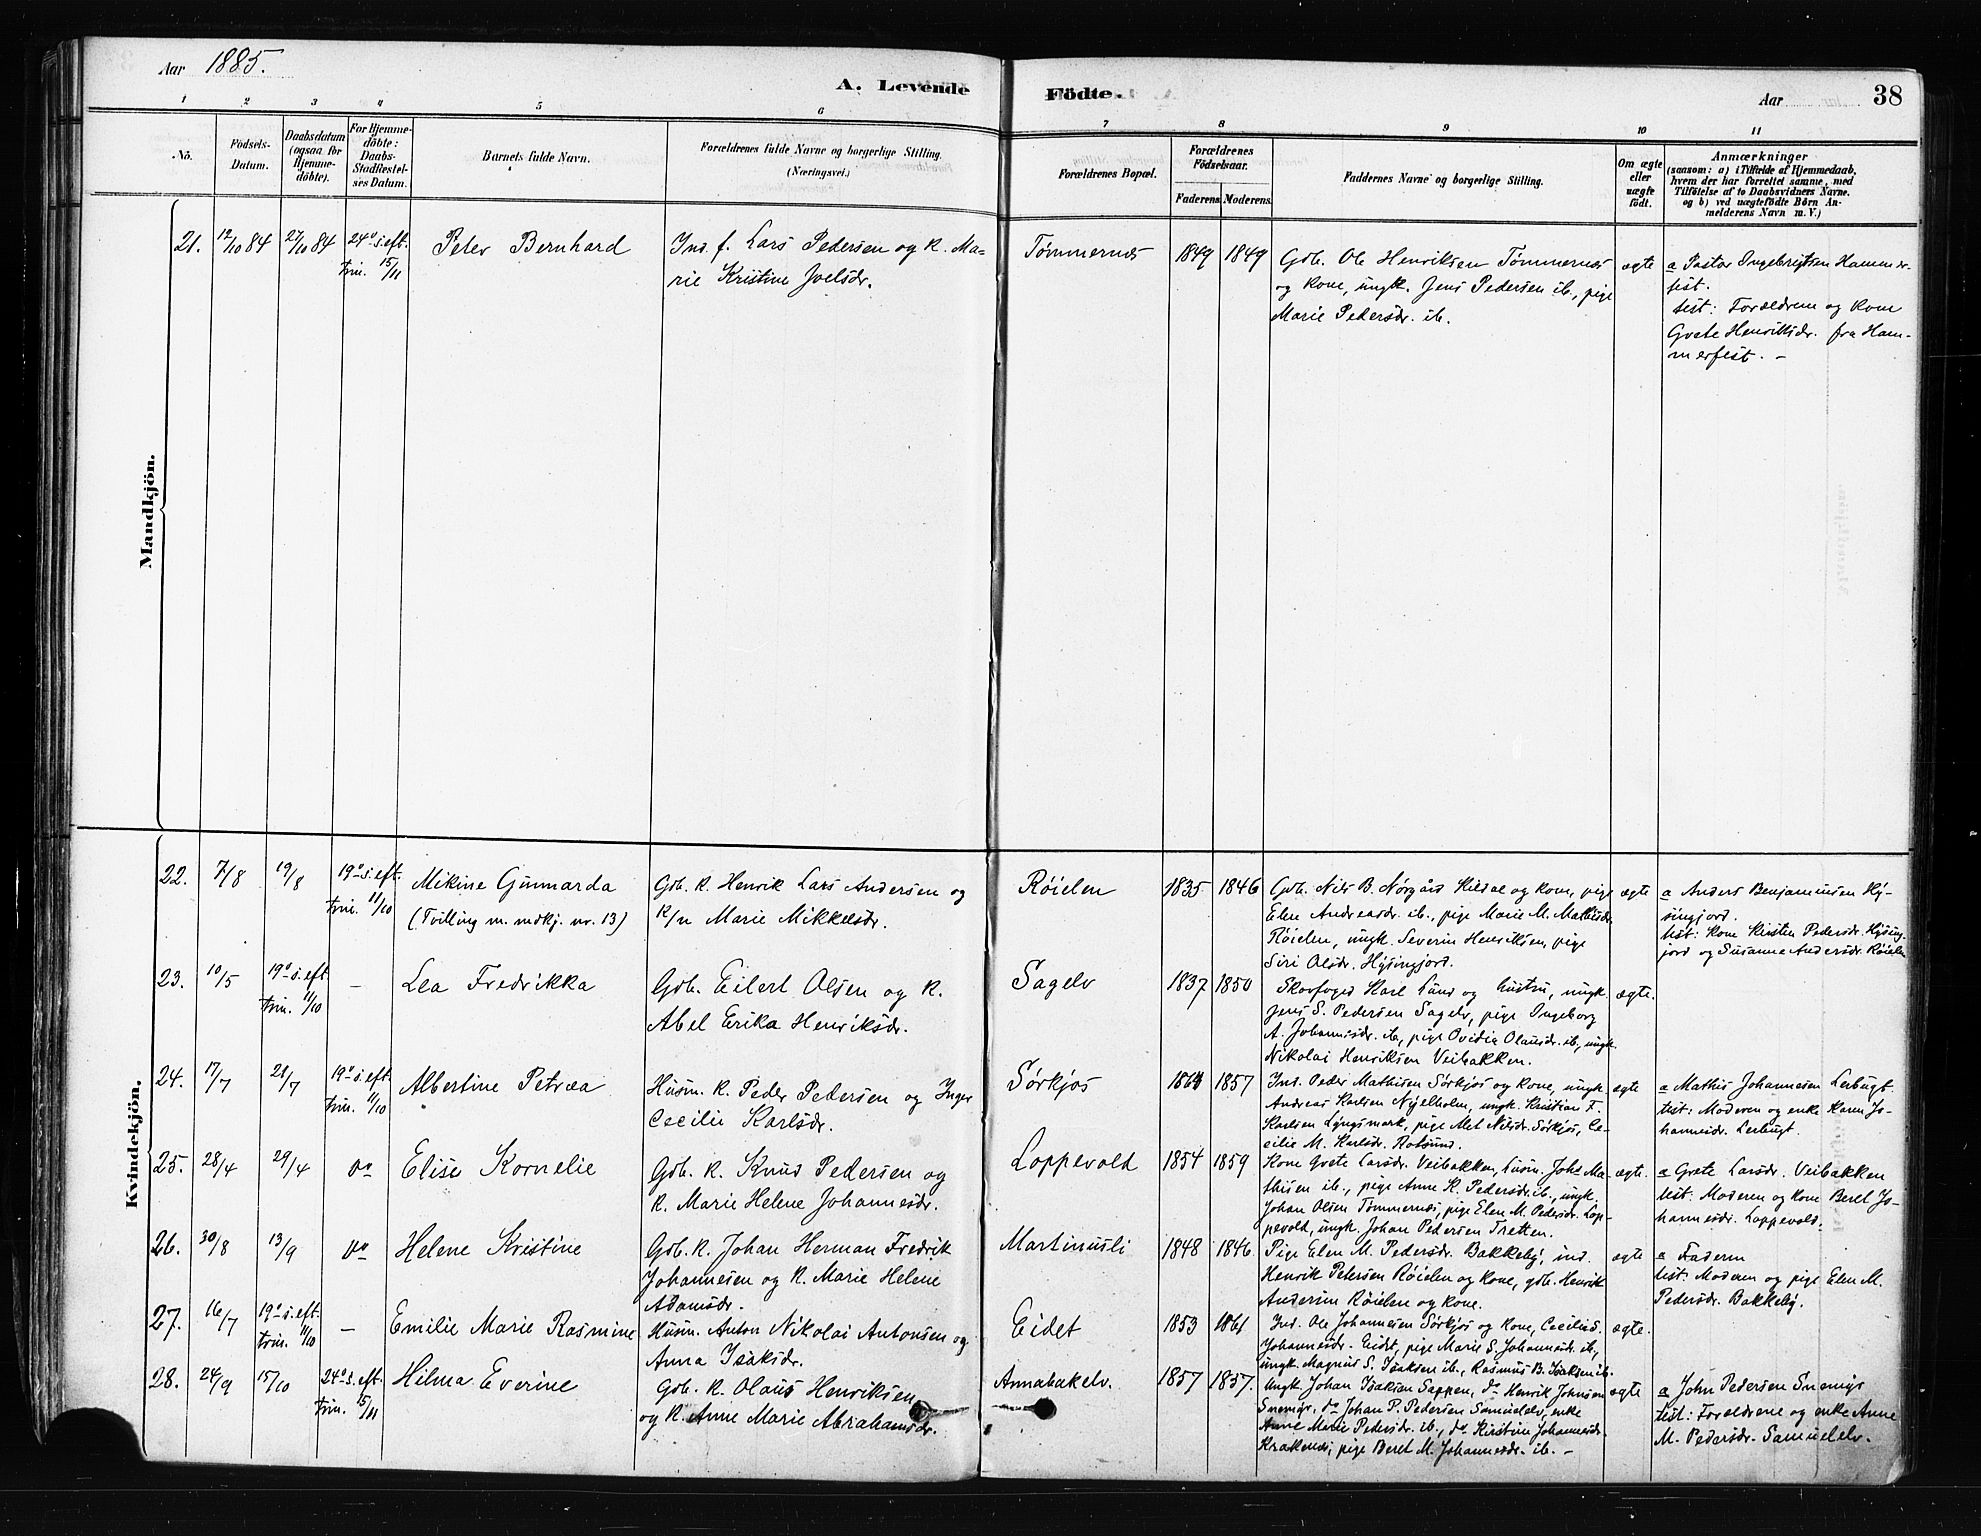 Aar 1885.
A. Levende Födte.
Aar
38
1 2 3 4 5 6 7 8 9 10 11
Nö.
Födsels-Datum.
Daabsdatum (ogsaa for Hjemme-döbte).
For Hjemme-döbte: Daabs-Stadfestel-ses Datum.
Barnets fulde Navn.
Forældrenes fulde Navne og borgerlige Stilling. (Næringsvei.)
Forældrenes Bopæl.
Forældrenes Födselsaar.
Faderens. Moderens.
Faddernes Navne og borgerlige Stilling.
Om ægte eller uægte födt.
Anmærkninger
(saasom: a) i Tilfælde af Hjemmedaab,
hvem der har forrettet samme, med
Tilföielse af to Daabsvidners Navne.
og b) ved uægtefödte Börn An-
melderens Navn m. V.)
Mandkjön.
21. 12/10 84 27/10 84 24º s. eft. trin. 15/11
Peter Bernhard
Ind. f. Lars Pedersen og K. Ma-
rie Kristine Joelsdr.
Tømmernes 1849 1849
Gdb. Ole Henriksen Tømmernes
og kone, ungk. Jens Pedersen ib., pige
Marie Pedersdr. ib.
ægte
a Pastor Ingebrigtsen Hammer-
fest.
test: Forældrene og kone
Grete Henriksdr. fra Ham-
merfest. –
Kvindekjön.
22. 7/8 19/8 19º s. eft. trin. 11/10
Mikine Gunnarda
(Tvilling m. mdkj. nr. 13)
Gdb. K. Henrik Lars Andersen og
K/n Marie Mikkelsdr.
Röielen 1835 1846
Gdb. Nils B. Nørgård Kildal og kone, pige
Elen Andreasdr. ib., pige Marie M. Mathisdr.
Röielen, ungk. Severin Henriksen, pige
Siri Olsdr. Hysingjord.
ægte
a Anders Benjaminsen Hy-
singjord.
test: kone Kirsten Pedersdr. Hysing-
jord og Susanne Andersdr. Röielen
23. 10/5 19º s. eft trin. 11/10 –
Lea Fredrikka
Gdb. Eilert Olsen og K.
Abel Erika Henriksdr.
Sagelv 1837 1850
Skovfoged Karl Lund og hustru, ungk.
Jens S. Pedersen Sagelv, pige Ingeborg
A. Johannesdr. ib., pige Ovidia Olausdr. ib., ungk.
Nikolai Henriksen Veibakken.
ægte.
24. 17/7 21/7 19º s. eft. trin. 11/10
Albertine Petræa
Husm. K. Peder Pedersen og Inger
Cecilie Karlsdr.
Sørkjos 1864 1857
Ind. Peder Mathisen Sørkjos og kone, ungk.
Andreas Karlsen Nyelholm, ungk. Kristian F.
Karlsen Lyngsmark, pige Met Nilsdr. Sørkjos, Ce-
cilie M. Karlsdr. Rotsund.
ægte
a Mathis Johannesen Lerbugt
test: Moderen og enke Karen Jo-
hannesdr. Lerbugt.
25. 28/4 29/4 do
Elise Kornelie
Gdb. K. Knud Pedersen og
K. Marie Helene Johannesdr.
Loppevold 1854 1859
Kone Grete Larsdr. Veibakken, husm. Johs Ma-
thisen ib., pige Anne K. Pedersdr. ib., ungk.
Johan Olsen Tømmernes, pige Elen M. Pedersdr. Lop-
pevold, ungk. Johan Pedersen Tretten.
ægte.
a Grete Larsdr. Veibakken
test. Moderen og kone Beret Jo-
hannesdr. Loppevold.
26. 30/8 13/9 do
Helene Kristine
Gdb. K. Johan Herman Fredrik
Johannesen og K. Marie Helene
Adamsdr.
Martinusli 1848 1846
Pige Elen M. Pedersdr. Bakkeby, ind.
Henrik Petersen Röielen og kone, gdb. Henrik
Andersen Röielen og kone.
ægte
a Faderen
test: Moderen og pige Elen M.
Pedersdr. Bakkeby.
27. 16/7 19º s. eft. trin. 11/10 –
Emilie Marie Rasmine
Husm. Anton Nikolai Antonsen og
Anna Isaksdr.
Eidet 1853 1861
Ind. Ole Johannesen Sørkjos og kone, Cecilie S.
Johannesdr. Eidet, pige Marie S. Johannesdr. ib.,
ungk. Magnus S. Isaksen ib., Rasmus B. Isaksen ib.
ægte.
28. 24/9 15/10 24º s. eft. trin. 15/11
Hilma Everine
Gdb. K. Olaus Henriksen
og K. Anne Marie Abrahamsdr.
Annabakelv. 1857 1857.
Ungk. Johan Isaksen Sappen, do Henrik Johnsen
Snemyr, do Johan P. Pedersen Samuelelv, enke
Anne Marie Pedersdr. ib., do Kirstine Johannesdr.
Kraknes, pige Beret M. Johannesdr. ib. –
ægte
a John Pedersen Snemyr
test: Forældrene og enke Anne
M. Pedersdr. Samuelelv.